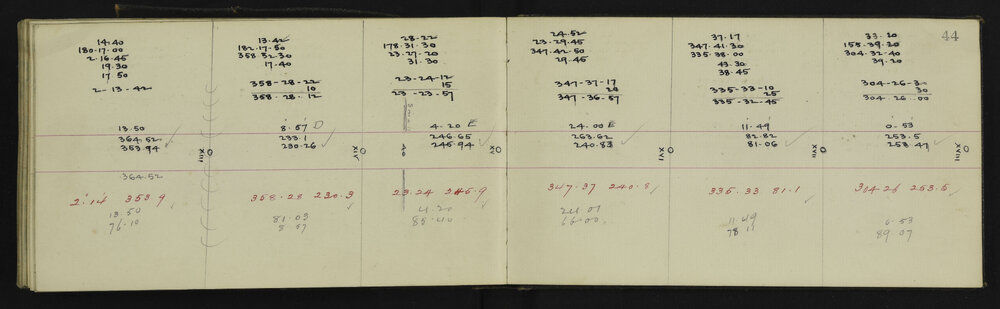 44
14.40
180.17.00
2.16.45
19.30
17.50
2-13-42
13.50
364.52
353.94
364.52
2.14 353.9
13.50
76.10
XIII
13.42
182.17.50
358.32.30
17.40
358-28-22
10
358.28.12
8.57 D
233.1
230.26
358.28 230.3
81.03
8.57
XIV
28-22
178.31.30
23.27.20
31.30
23-24-12
15
23-23-57
4.20 E
246.65
245.94
23.24 245.9
4.20
85.40
XV
24.52
23.29.45
347.42.50
29.45
347-37-17
20
347-36-57
24.00 E
263.62
240.83
347.37 240.8
24.01
66.00
XVI
37.17
347.41.30
335.38.00
43.30
38.45
335-33-10
25
335-32-45
11.49
82.82
81.06
335.33 81.1
11.49
78.11
XVII
33.20
155.39.20
304.32.40
39.20
304-26-3
30
304.26.00
0.53
253.5
253.47
304.26 253.5
6.53
89.07
XVIII